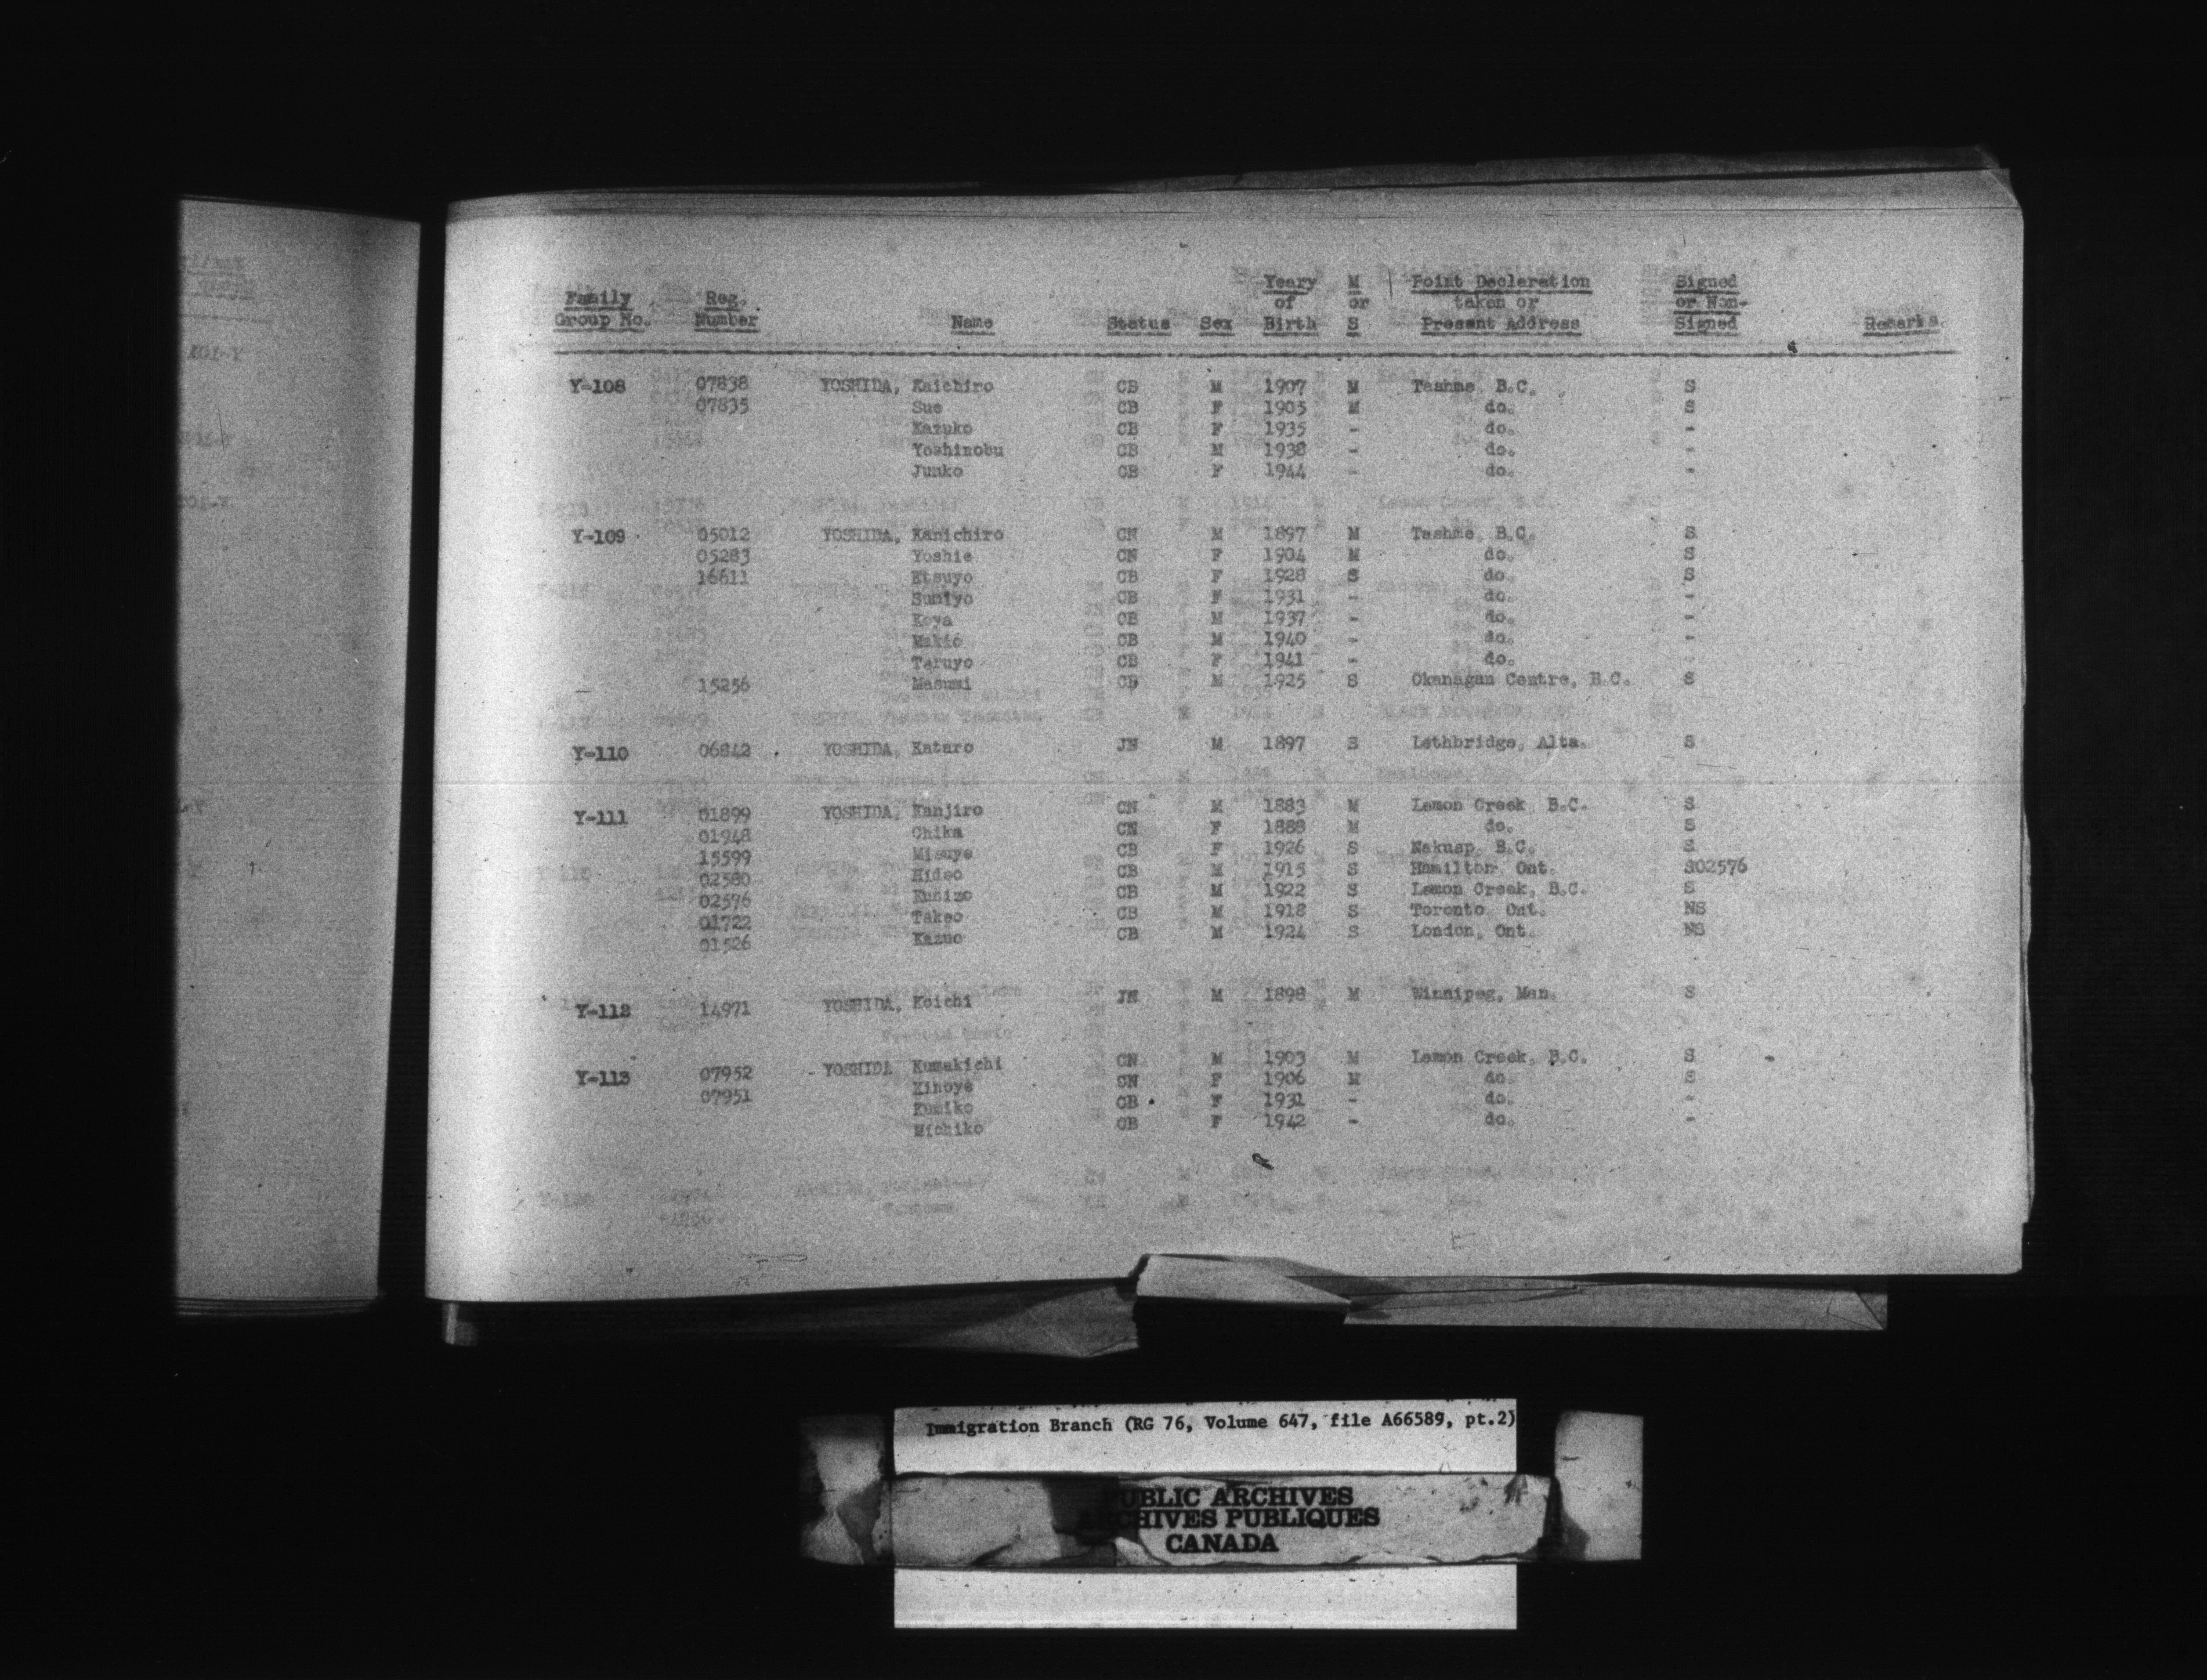 Family Group No. Reg. Number Name Status Sex Yeary of Birth M or S Point Declaration taken or Present Address Signed or Non-Signed Remarks
Y-108 07838 YOSHIDA, Kaichiro CB M 1907 M Tashme, B.C. S
07835 Sue CB F 1905 M do. S
Kazuko CB F 1935 - do. -
Yoshinobu CB M 1938 - do. -
Junko CB F 1944 - do. -
Y-109 05012 YOSHIDA, Kanichiro CN M 1897 M Tashme, B.C. S
05283 Yoshie CN F 1904 M do. S
16611 Etsuyo CB F 1928 S do. S
Sumiyo CB F 1931 - do. -
Koya CB M 1937 - do. -
Makio CB M 1940 - do. -
Teruyo CB F 1941 - do.
15256 Masumi CB M 1925 S Okanagan Centre, B.C. S
Y-110 06842 YOSHIDA, Kataro JN M 1897 S Lethbridge, Alta. S
Y-111 01899 YOSHIDA, Kanjiro CN M 1883 M Lemon Creek, B.C. S
01948 Chika CN F 1888 M do. S
15599 Misuye CB F 1926 S Nakusp, B.C. S
02580 Hideo CB M 1915 S Hamilton Ont. S02576
02576 Kunizo CB M 1922 S Lemon Creek, B.C. S
01722 Takeo CB M 1918 S Toronto Ont. NS
01526 Kazuo CB M 1924 S London, Ont. NS
Y-112 14971 YOSHIDA, Koichi JN M 1898 M Winnipeg, Man. S
Y-113 07952 YOSHIDA Kumakichi CN M 1903 M Lemon Creek, B.C. S
07951 Kinoye CN F 1906 M do. S
Kumiko CB F 1931 - do. -
Michiko CB F 1942 - do. -
Immigration Branch (RG 76, Volume 647, file A66589, pt.2)
PUBLIC ARCHIVES
ARCHIVES PUBLIQUES
CANADA